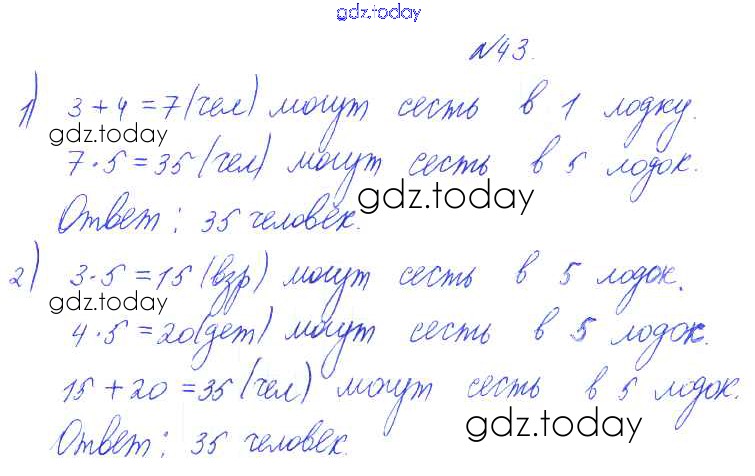 gdz.today
№43.
1) 3 + 4 = 7 (чел) могут сесть в 1 лодку.
gdz.today
7 · 5 = 35 (чел) могут сесть в 5 лодок.
gdz.today
Ответ: 35 человек.
2) 3 · 5 = 15 (взр) могут сесть в 5 лодок.
gdz.today
4 · 5 = 20 (дет) могут сесть в 5 лодок.
15 + 20 = 35 (чел) могут сесть в 5 лодок.
gdz.today
Ответ: 35 человек.